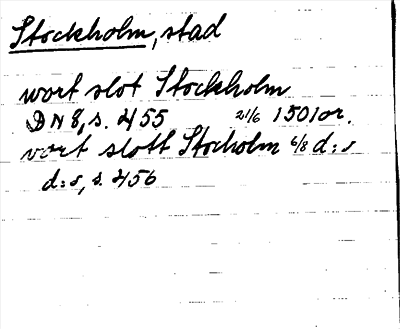 Stockholm, stad
wort slot Stockholm
DN 8, s. 455 21/6 1501 or.
vort slott Stocholm 6/8 d:s
d:s, s. 456